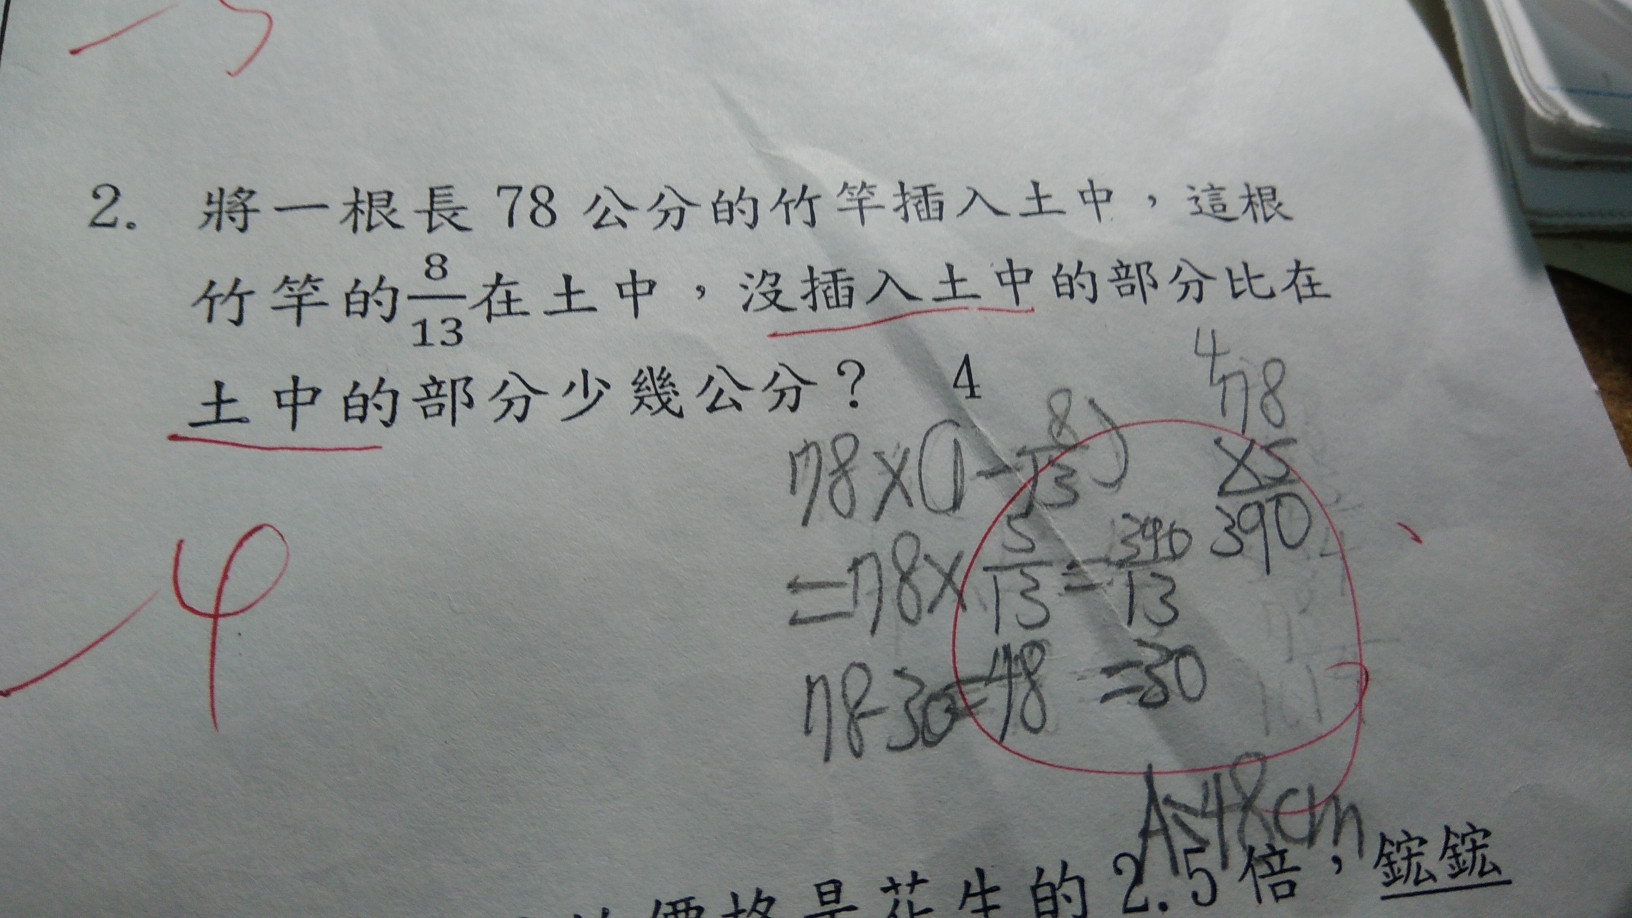 2. 將一根長 78 公分的竹竿插入土中，這根
竹竿的8/13在土中，沒插入土中的部分比在
土中的部分少幾公分？ 4
4
78
×5
390
78×(1-8/13)
=78×5/13=390/13
=30
78-30=48
A:48cm
-4
價格是花生的 2.5 倍，鋐鋐